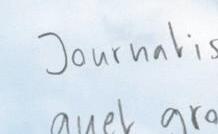 Journalis
quet gro